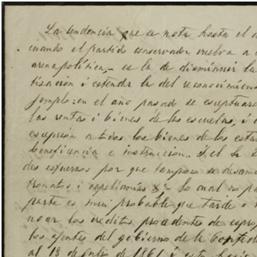 La tendencia que se nota hasta el
cuando el partido conservador vuelva a
arena política, es la de disminuir la
tisación i estender la del reconocimien
jemplo: en el año pasado se esceptuaro
las rentas i bienes de las escuelas, i
escepcion a todos los bienes de los esta
beneficencia e instruccion. I, el
dos esfuerzos por que tampoco se desam
tronatos i capellanías &ª lo cual
parte es mui probable que tarde o
nocer los créditos procedentes de espro
los ajentes del gobierno de la Confed
al 18 de julio de 1861 i esto